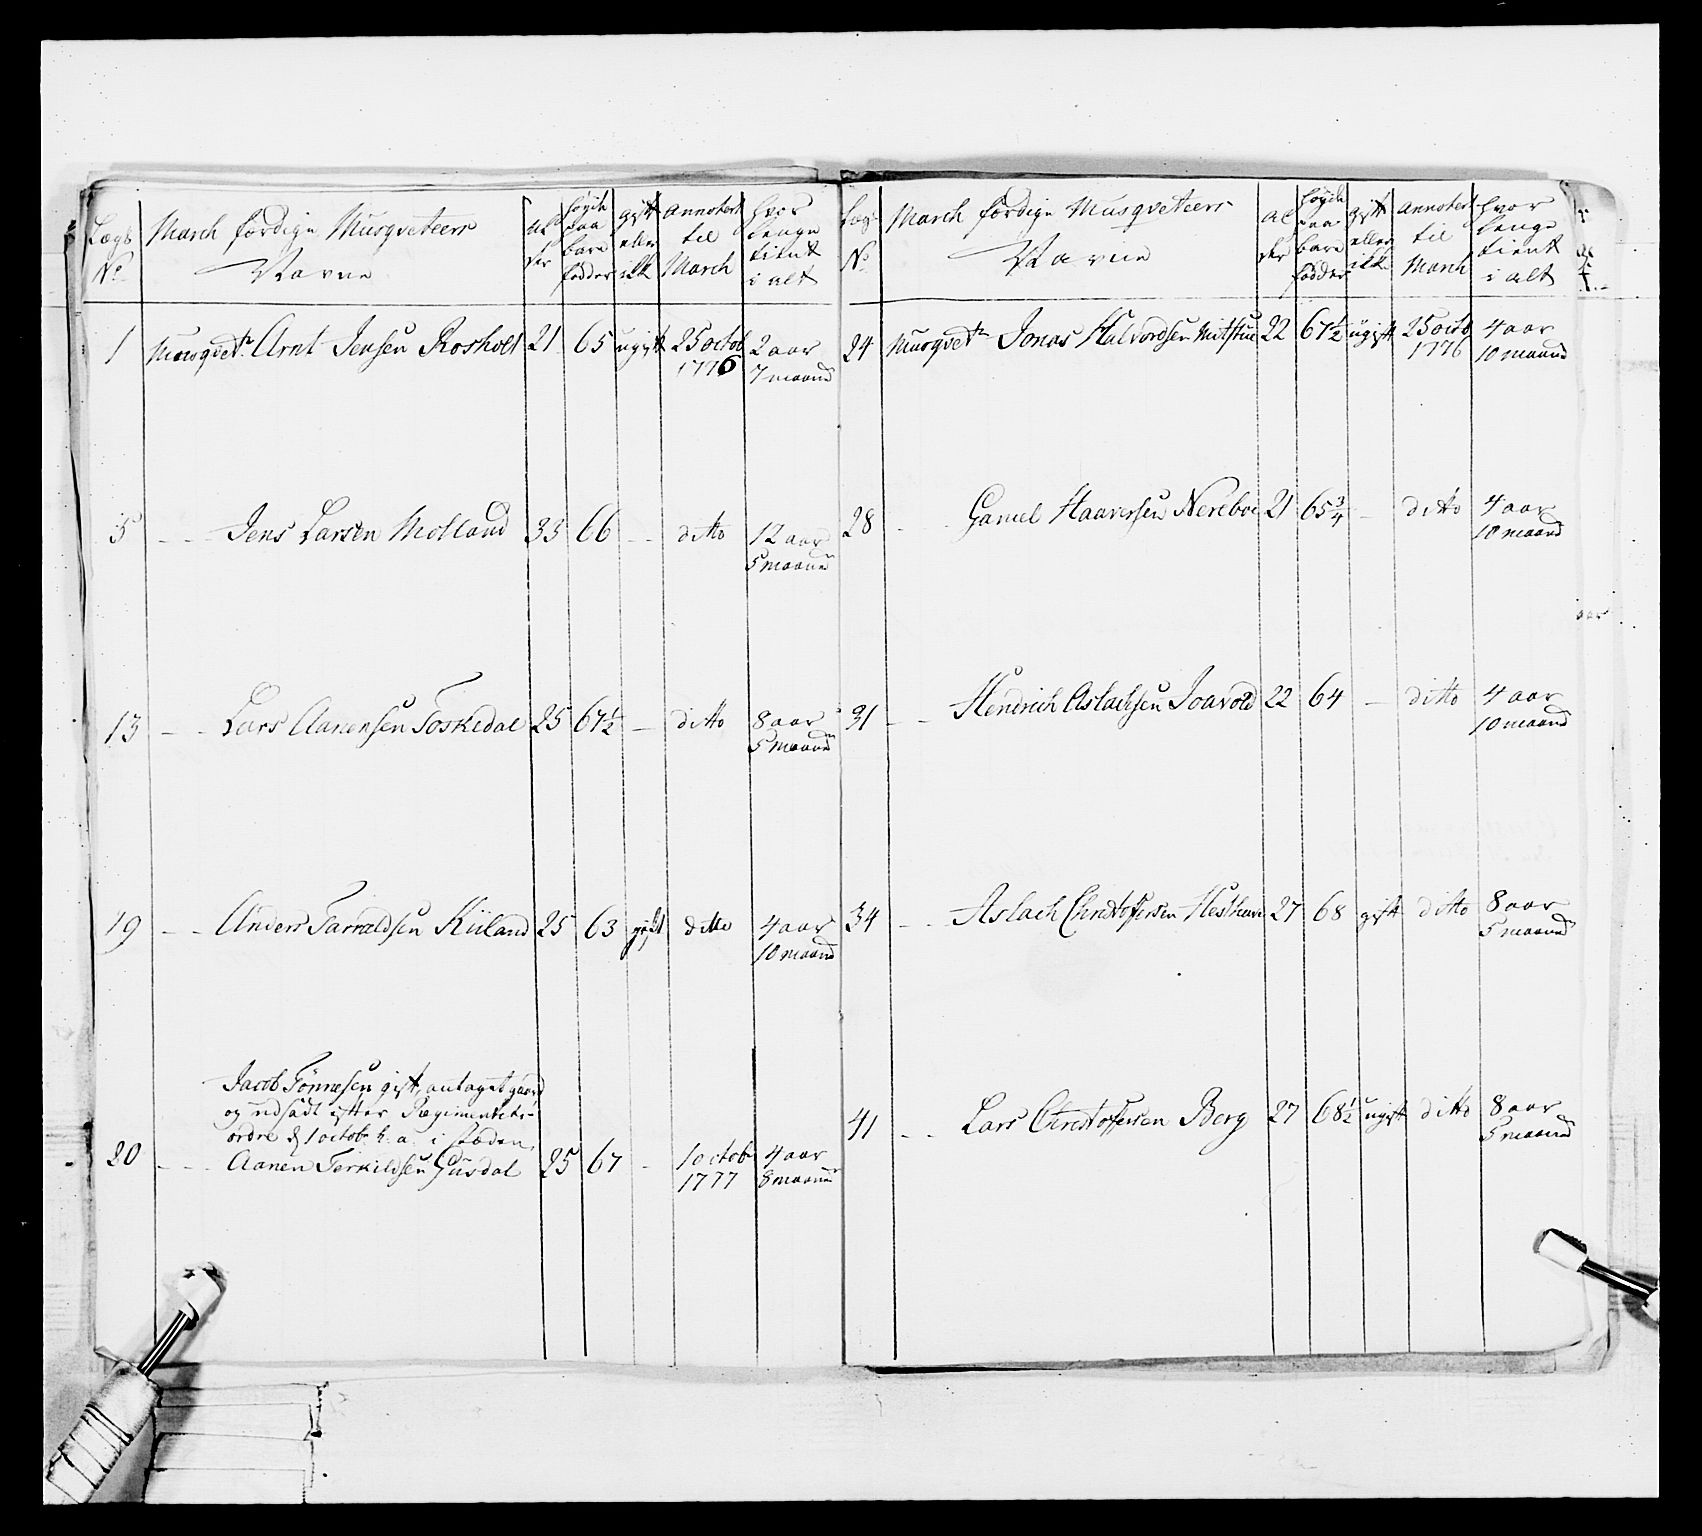 Lægs No
March færdige Musqveteers Navne
Alder
Høyde paa bare fødder
gift eller ikke
annoteret til March
Hvor lenge tient i alt
1 Mousqvetr. Arnt Jensen Rosholt 21 65 ugift 25 octob 1776 2 aar
7 maaned
5 - - Jens Larsen Molland 33 66 - - ditto 12 aar
5 maaned
13 - - Lars Aanensen Toskedal 25 67 1/2 - ditto 8 aar
5 maaned
19 - - Anders Tarraldsen Kiiland 25 63 gift ditto 4 aar
10 maaned
Jacob Tønnesen gift, antaget gaard
og udsadt efter Regimentets
ordre d 1 octob. h. a. i stæden
20 - - Aanen Terkildsen Gusdal 25 67 - 1 octob 1777 4 aar
8 maaned
Lægs No
March færdige Musqveteers Navne
Alder
Høyde paa bare fødder
gift eller ikke
annoteret til March
Hvor lenge tient i alt
24 Musqvetr Jonas Halvordsen 22 67 1/2 ugift 25 octo 1776 4 aar
10 maaned
28 - - Gamel Haaversen Nereboe 21 65 3/4 - ditto 4 aar
10 maaned
31 - - Hendrich Aslachsen Joavold 22 64 - ditto 4 aar
10 maaned
34 - - Aslach Christophersen 27 68 gift ditto 8 aar
5 maaned
41 - - Lars Christophersen Berg 27 68 1/2 ugift ditto 8 aar
5 maaned
aar